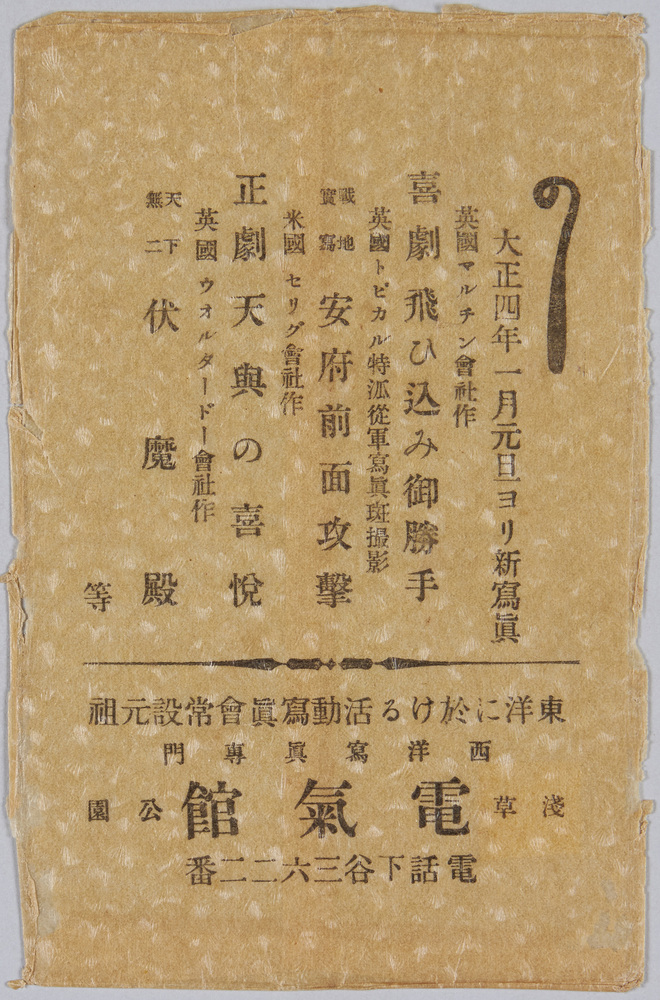 大正四年一月元旦ヨリ新寫眞
英國マルチン會社作
喜劇飛ひ込み御勝手
英國トピカル特派從軍寫眞班撮影
戰地
實寫
安府前面攻擊
米國セリグ會社作
正劇天與の喜悅
英國ウオルタードー會社作
天下
無二
伏魔殿
等
東洋に於ける活動寫眞會常設元祖
西洋寫眞專門
淺草
電氣館
公園
電話下谷三六二二番